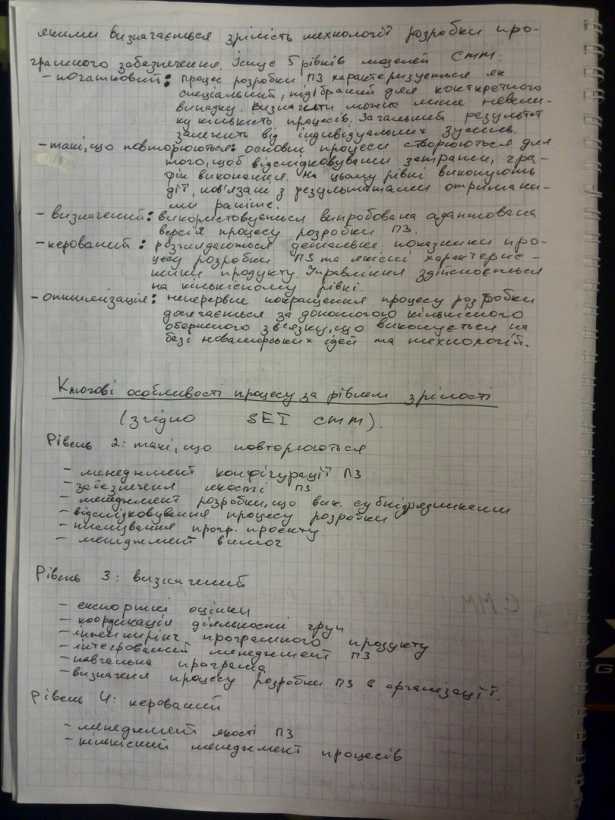 якими визначається зрілість технології розробки про-
грамного забезпечення. Існує 5 рівнів моделей СММ.
- початковий: процес розробки ПЗ характеризується як
спеціальний, підібраний для конкретного
випадку. Визначити можна лише невели-
ку кількість процесів. Загальний результат
залежить від індивідуальних зусиль.
- такі, що повторюються: основні процеси створюються для
того, щоб відслідковувати затрати, гра-
фік виконання. На цьому рівні виконують
дії, пов'язані з результатами отримани-
ми раніше.
- визначений: використовується випробована адаптована
версія процесу розробки ПЗ.
- керований: розглядаються детальні показники про-
цесу розробки ПЗ та якісні характерис-
тики продукту. Управління здійснюється
на кількісному рівні.
- оптимізація: неперервне покращення процесу розробки
досягається за допомогою кількісного
оберненого зв'язку, що виконується на
базі новаторських ідей та технологій.
Ключові особливості процесу за рівнем зрілості
(згідно SEI СММ).
Рівень 2: такі, що повторюються
- менеджмент конфігурації ПЗ
- забезпечення якості ПЗ
- менеджмент розробки, що вик. субпідрядниками
- відслідковування процесу розробки
- планування прогр. проєкту
- менеджмент вимог
Рівень 3: визначений
- експертні оцінки
- координація діяльності груп
- інженірінг програмного продукту
- інтегрований менеджмент ПЗ
- навчальна програма
- визначення процесу розробки ПЗ в організації.
Рівень 4: керований
- менеджмент якості ПЗ
- кількісний менеджмент процесів